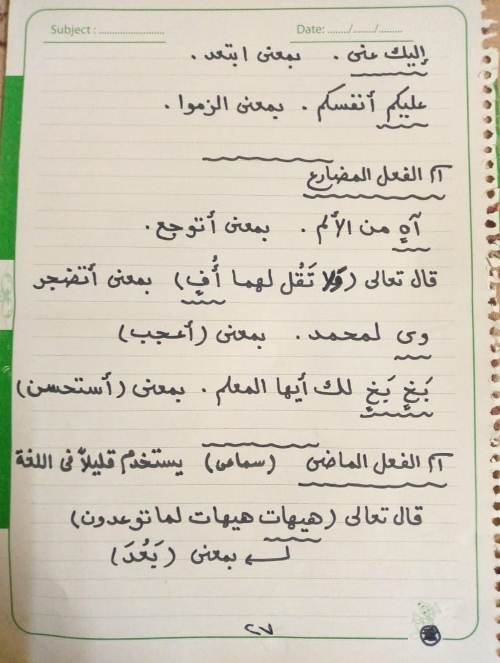 Subject : ........................ Date: ......../......../.........
إليك عنى . بمعنى ابتعد .
عليكم أنفسكم . بمعنى الزموا .
الفعل المضارع
آهٍ من الألم . بمعنى أتوجع .
قال تعالى (ولا تَقُل لهما أُفٍ) بمعنى أتضجر
وى لمحمد . بمعنى (أعجب)
بَخٍ بَخٍ لك أيها المعلم . بمعنى (أستحسن)
الفعل الماضى (سماعى) يستخدم قليلاً فى اللغة
قال تعالى (هيهات هيهات لما توعدون)
بمعنى (بَعُدَ)
٢٧